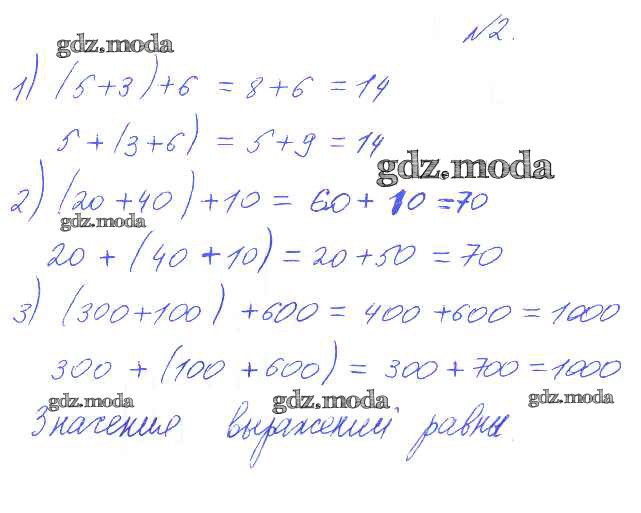 №2.
gdz.moda
1) (5+3)+6 = 8+6 = 14
5+(3+6) = 5+9 = 14
gdz.moda
2) (20+40)+10 = 60+10 =70
gdz.moda
20 + (40 + 10) = 20+50 = 70
3) (300+100) +600 = 400 +600 = 1000
300 + (100 + 600) = 300 + 700 = 1000
gdz.moda gdz.moda gdz.moda
Значения выражений равны.